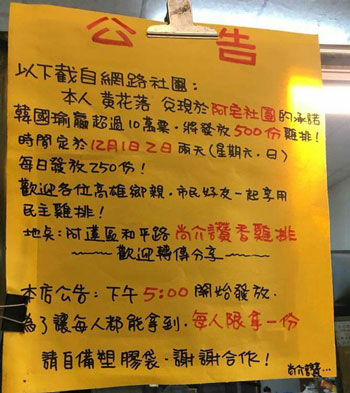 公告
以下截自網路社團：
本人 黃花落 兌現於阿宅社團的承諾
韓國瑜贏超過10萬票，將發放500份雞排！
時間定於12月1日2日兩天(星期六．日)
每日發放250份！
歡迎各位高雄鄉親．市民好友一起享用
民主雞排！
地點：阿蓮區和平路尚介讚香雞排
歡迎轉傳分享
本店公告：下午5:00開始發放．
為了讓每人都能拿到．每人限拿一份
請自備塑膠袋．謝謝合作！
尚介讚...